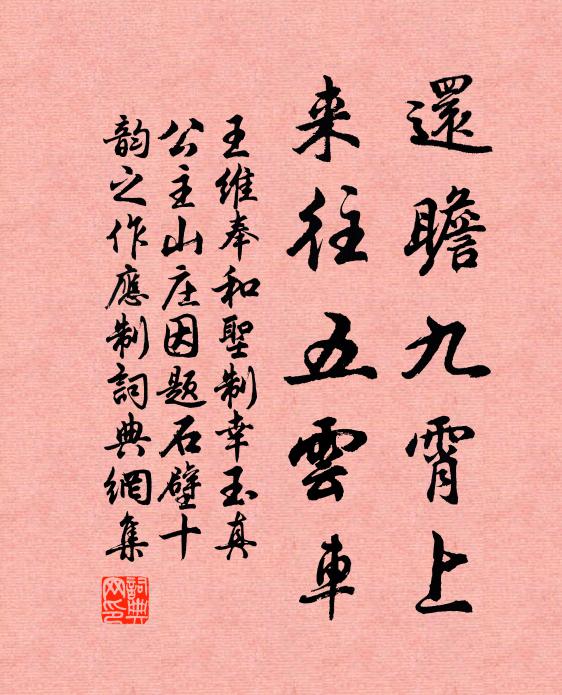 還瞻九霄上
来往五雲車
王維奉和聖制幸玉真
公主山庄因题石壁十
韵之作應制詞典網集
詞典網印